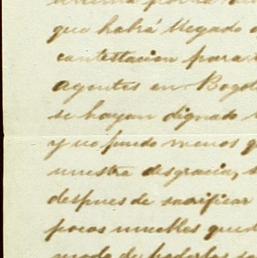 que habrá llegado
contestacion para
agentes en Bogot
se hayan dignado
y no puedo menos q
nuestra desgracia, s
despues de sacrificar
pocos muebles qued
modo de poderlos